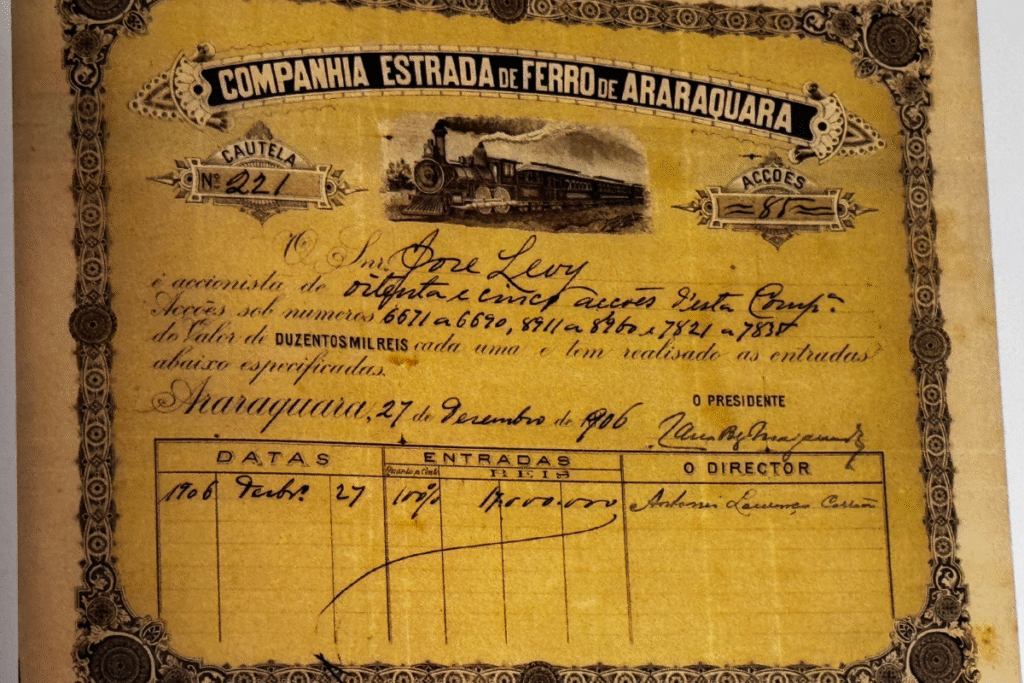 COMPANHIA ESTRADA DE FERRO DE ARARAQUARA
CAUTELA
Nº 221
ACÇÕES
85
O Snr. Jose Levy
é accionista de oitenta e cinco acções d'esta Compª
Acções sob numeros 6671 a 6690, 8911 a 8960 e 7821 a 7835
do Valor de DUZENTOS MIL REIS cada uma e tem realisado as entradas
abaixo especificadas.
Araraquara, 27 de Dezembro de 1906
O PRESIDENTE
DATAS ENTRADAS O DIRECTOR
REIS
1906 Dezbrº 27 100% 17.000.000 Antonio Lourenço Corrêa